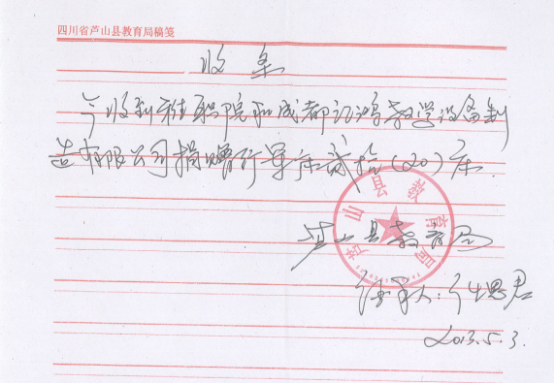 四川省芦山县教育局稿笺
收条
今收到雅职院和成都 鸿教学设备制
造有限公司捐赠行军床 (20)床.
芦山县教育局
芦山县教育局
经办人: 君
2013.5.3.